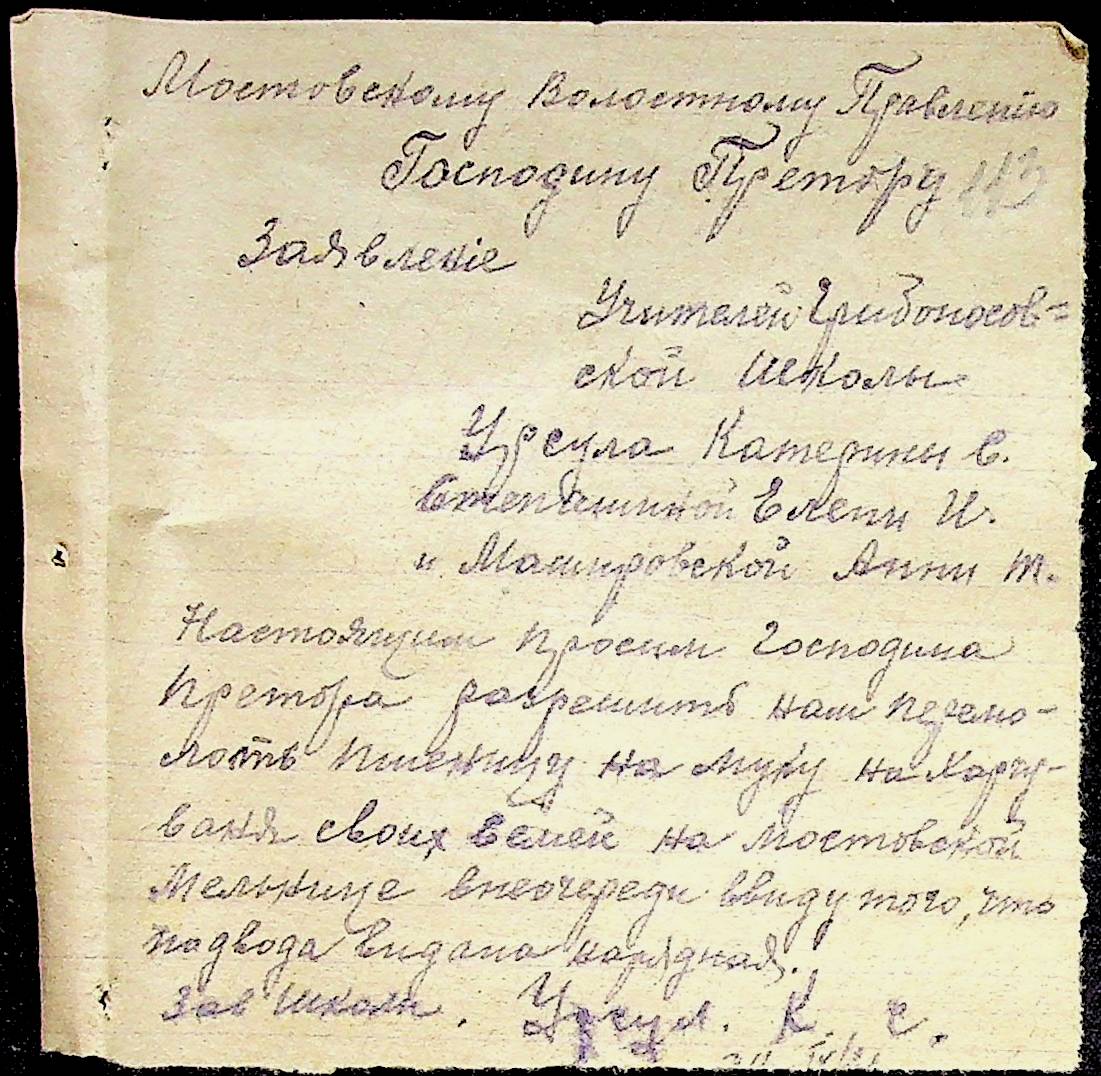 Мостовскому Волостному Правлению
Господину Претору 113
Заявленіе
Учителей Грибоносов-
ской школы
Урсула Катерины С.
Степашиной Елени И.
и Машировской Анни Т.
Настоящим просим Господина
Претора разрешить нам перемо-
лоть пшеницу на муку на харчу-
ваня своих семей на Мостовской
Мельнице внеочереди ввиду того, что
подвода видана нарядная.
Зав школи. Урсул. К. С.